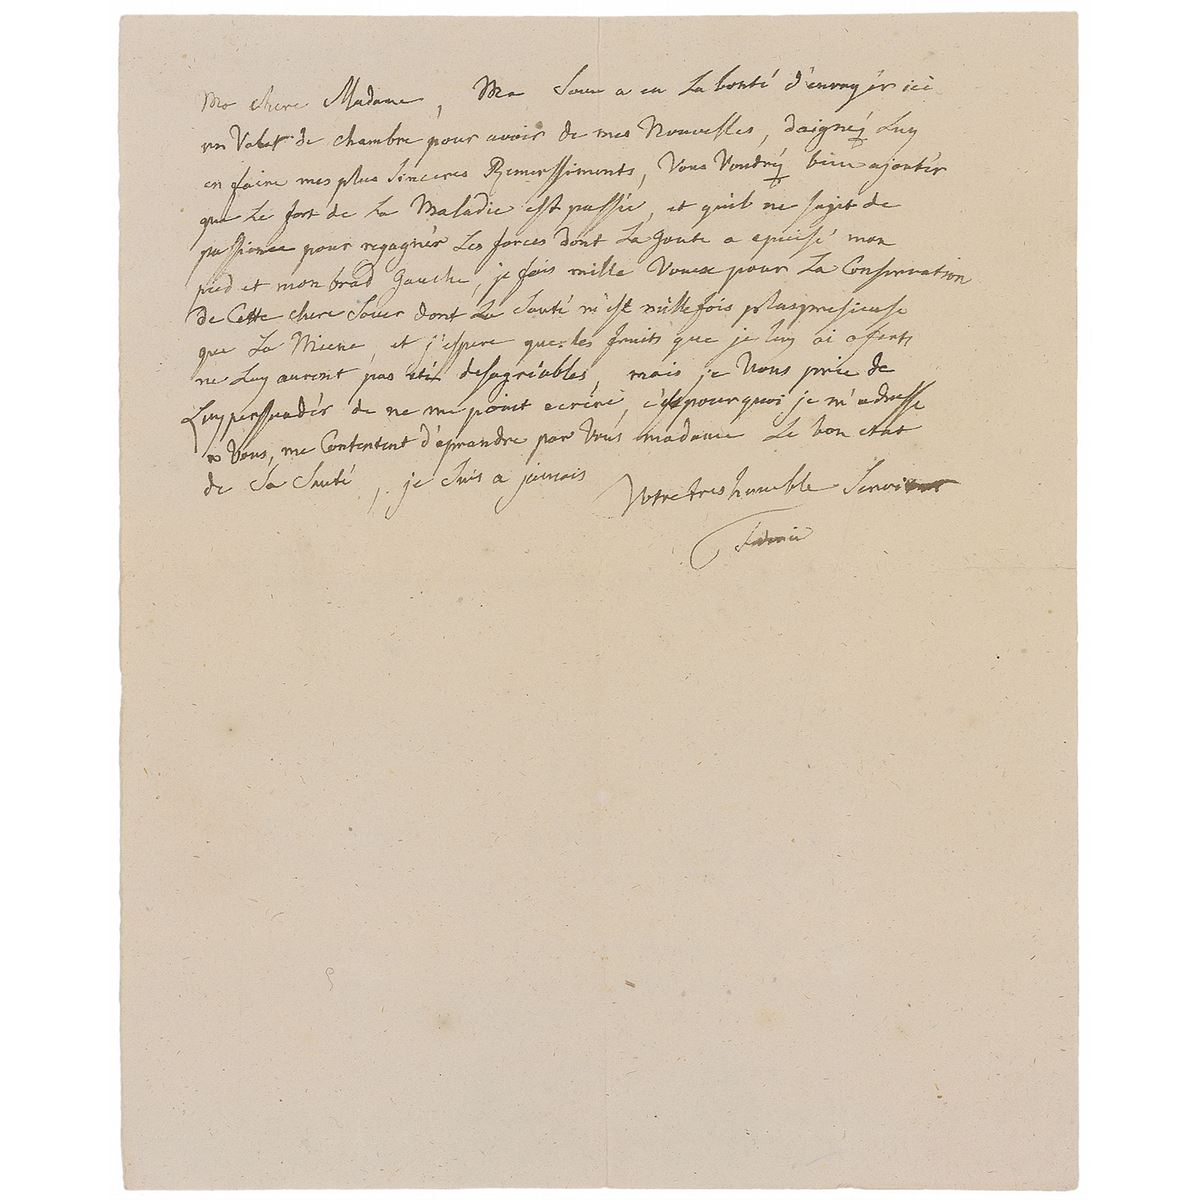 Ma chere Madame, Ma Soeur a eu La bonté d'envoyér ici
un Valet de chambre pour avoir de mes Nouvelles, daignéz Luy
en faire mes plus Sinceres Remerssiments, Vous Voudréz bien ajoutér
que Le fort de La Maladie est passée, et quil ne sagit de
passience pour regagnér Les forces dont La Goute a epuisé mon
pied et mon brad Gauche, je fais mille Voeux pour La Conservation
de Cette chere Soeur dont La Santé m'est mille fois plus presieuse
que La Miene, et j'espere que les fruits que je luy ai oferts
ne Luy auront pas été desagréables, mais je Vous prie de
Luy perssuadér de ne me point ecrire, c'est pourquoi je m'adresse
a Vous, me Contentent d'aprandre par Vous madame Le bon etat
de Sa Santé, je Suis a jamais
Votre tres humble Servi
Federic